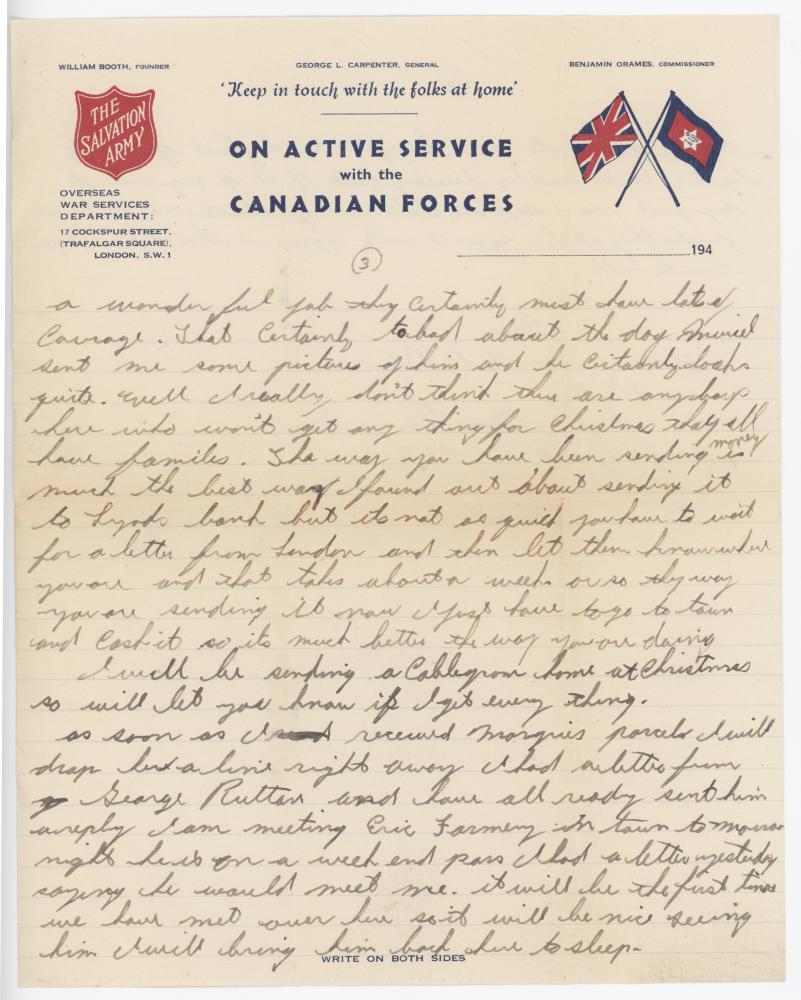 WILLIAM BOOTH, FOUNDER
GEORGE L. CARPENTER, GENERAL
BENJAMIN ORAMES, COMMISSIONER
'Keep in touch with the folks at home'
THE
SALVATION
ARMY
ON ACTIVE SERVICE
with the
CANADIAN FORCES
OVERSEAS
WAR SERVICES
DEPARTMENT:
17 COCKSPUR STREET,
(TRAFALGAR SQUARE),
LONDON. S.W.1
194
(3)
a wonderful job they certainly must have lots of
Courage. That Certainly to bad about the dog Muriel
sent me some pictures of him and he certainly looks
quite. Well I really don't think there are any boys
here who won't get any thing for Christmas they all
have familes. The way you have been sending money is
much the best way I found out about sending it
to Lyods bank but its not as quick you have to wait
for a letter from London and then let them know where
you are and that takes about a week or so they way
you are sending it now I just have to go to town
and Cash it so its much better the way you are doing
I will be sending a Cablegram home at Christmas
so will let you know if I get every thing.
as soon as I received Margies parcels I will
drop her a line right away I had a letter from
George Ruttan and have all ready sent him
a reply I am meeting Eric Farmery in town to morrow
night he is on a week end pass I had a letter yesterday
saying he would meet me. it will be the first time
we have met over here so it will be nice seeing
him I will bring him back here to sleep.
WRITE ON BOTH SIDES